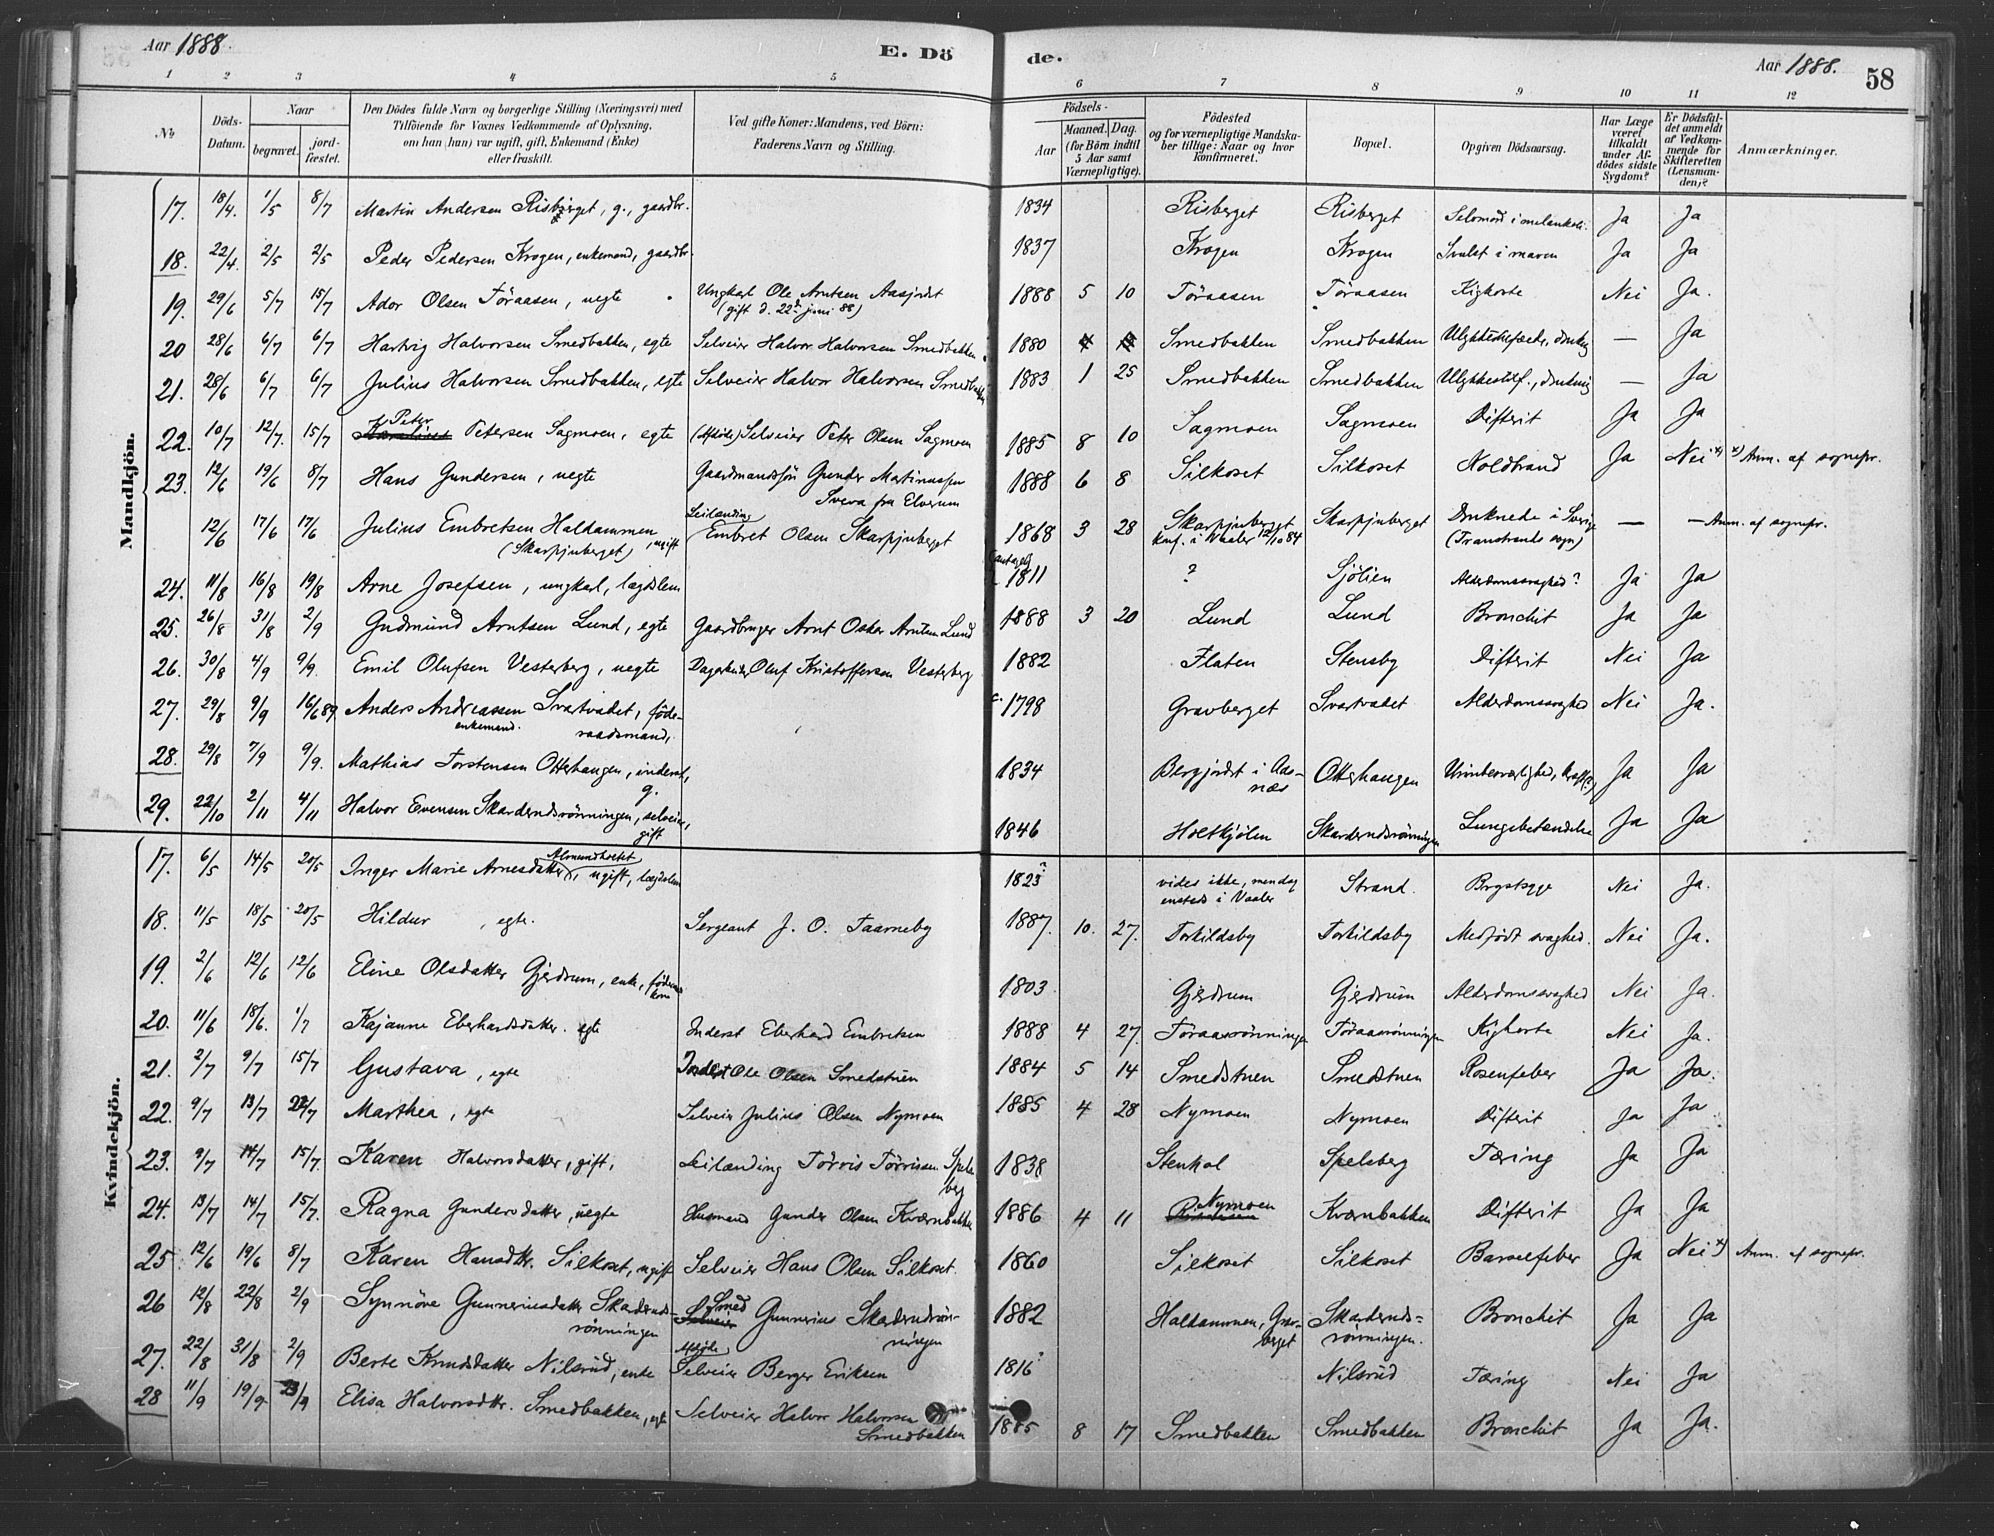 Aar 1888. E. Dö de. Aar 1888. 58
1 2 3 4 5 6 7 8 9 10 11 12
No Döds-Datum. Naar begravet. jordfæstet. Den Dödes fulde Navn og borgerlige Stilling (Næringsvei) med Tilföiende for Voxnes Vedkommende af Oplysning, om han (hun) var ugift, gift, Enkemand (Enke) eller fraskilt. Ved gifte Koner: Mandens, ved Börn: Faderens Navn og Stilling. Födsels- Aar Maaned. Dag. (for Börn indtil 5 Aar samt Værnepligtige). Födested og for værnepligtige Mandskaber tillige: Naar og hvor konfirmeret. Bopæl. Opgiven Dödsaarsag. Har Læge været tilkaldt under Afdödes sidste Sygdom? Er Dödsfaldet anmeldt af Vedkommende for Skifteretten (Lensmanden)? Anmærkninger.
Mandkjön.
17. 18/4. 1/5 8/7 Martin Andersen Risberget, g., gaardbr. 1834 Risberget Risberget Selvmord i melankoli. Ja Ja
18. 22/4. 2/5 2/5 Peder Pedersen Krogen, enkemand, gaardbr. 1837 Krogen Krogen Svulst i maven Ja Ja
19. 29/6 5/7 15/7 Ador Olsen Töraasen, uegte Ungkarl Ole Arntsen Aasjordet (gift d. 22de juni 88) 1888 5 10 Töraasen Töraasen Kighoste Nei Ja.
20 28/6 6/7 6/7 Hartvig Halvorsen Smedbakken, egte Selveier Halvor Halvorsen Smedbakken 1880 Smedbakken Smedbakken Ulykkestilfælde, drukning — Ja
21. 28/6 6/7 6/7 Julius Halvorsen Smedbakken, egte Selveier Halvor Halvorsen Smedbakken 1883 1 25 Smedbakken Smedbakken Ulykkestilf., drukning — Ja
22. 10/7 12/7. 15/7 Peter Petersen Sagmoen, egte (Afdöde) Selveier Peter Olsen Sagmoen 1885 8 10 Sagmoen Sagmoen Difterit Ja Ja
23. 12/6 19/6 8/7 Hans Gundersen, uegte Gaardmandssön Gunder Martinussen Svera fra Elverum 1888 6 8 Silkoset Silkoset Koldbrand Ja Nei x) x) Anm. af sognepr.
12/6 17/6 17/6 Julius Embretsen Haldammen (Skarpjuberget), ugift Leilænding Embret Olsen Skarpjuberget 1868 3 28 Skarpjuberget konf. i Vaaler 12/10 84 Skarpjuberget Druknede i Sverige (Transtrands sogn) — — Anm. af sognepr.
24. 11/8 16/8 19/8 Arne Josefsen, ungkarl, lægdslem (antagelig) 1811 ? Sjölien Alderdomssvaghed? Ja Ja
25. 26/8 31/8 2/9 Gudmund Arntsen Lund, egte Gaardbruger Arnt Oskar Arntsen Lund 1888 3 20 Lund Lund Bronchit Ja Ja
26. 30/8 4/9 9/9. Emil Olufsen Vesterberg, uegte Dagarbeider Oluf Kristoffersen Vesterberg 1882 Flaten Stensby Difterit Nei Ja
27. 29/8 9/9 16/6 89. Anders Andreassen Svartvadet, föderaadsmand, enkemand. c. 1798 Gravberget Svartvadet Alderdomssvaghed Nei Ja.
28. 29/8 7/9 9/9. Mathias Torstensen Otterhaugen, inderst, g. 1834 Bergjordet i Aasnæs Otterhaugen Urinbesværlighed, kræft(?) Ja Ja
29. 22/10 2/11 4/11 Halvor Evensen Skarderudsrönningen, selveier, gift 1846 Holtkjölen Skarderudsrönningen Lungebetændelse Ja Ja
Kvindekjön.
17. 6/5 14/5 20/5 Inger Marie Arnesdatter Almundholtet, ugift, lægdslem 1823? vides ikke, men dog ensteds i Vaaler Strand. Brystsyge Nei Ja.
18. 11/5 18/5 20/5 Hildur, egte. Sergeant J. O. Taarneby 1887. 10. 27. Torkildsby Torkildsby Medfödt svaghed. Nei Ja.
19. 2/6 12/6 12/6 Eline Olsdatter Gjerdrum, enke, föderaadskone 1803 Gjerdrum Gjerdrum Alderdomssvaghed Nei Ja.
20. 11/6 18/6. 1/7 Kajanne Eberhardsdatter. egte Inderst Eberhard Embretsen 1888 4 27. Töraasrönningen Töraasrönningen Kighoste Nei Ja.
21. 2/7 9/7 15/7 Gustava, egte Inderst Ole Olsen Smedstuen 1884 5 14 Smedstuen Smedstuen Rosenfeber Ja Ja.
22. 9/7 13/7 22/7 Marthea, egte Selveier Julius Olsen Nymoen 1885 4 28 Nymoen Nymoen Difterit Ja Ja
23. 9/7 14/7 15/7. Karen Halvorsdatter, gift, Leilænding Törris Törrissen Spelsberg 1838 Stenhol Spelsberg Tæring Ja Ja
24. 13/7 14/7 15/7. Ragna Gundersdatter, uegte Husmand Gunder Olsen Kværnbakken 1886 4 11 Nymoen Kværnbakken Difterit Ja Ja
25 12/6 19/6 8/7 Karen Hansdtr. Silkoset, ugift Selveier Hans Olsen Silkoset. 1860 Silkoset Silkoset Barselfeber Ja Nei x) Anm. af sognepr.
26 12/8 22/8 2/9 Synnöve Gunneriusdatter Skarderudsrönningen Smed Gunnerius Skarderudsrönningen 1882 Haldammen, Gravberget Skarderudsrönningen. Bronchit Ja Ja
27. 22/8 31/8 2/9 Berte Knudsdatter Nilsrud, enke Afdöde Selveier Berger Eriksen 1816? Nilsrud Tæring Nei Ja
28 11/9 19/9. 23/9 Elisa Halvorsdtr. Smedbakken, egte Selveier Halvor Halvorsen Smedbakken 1885 8 17 Smedbakken Smedbakken Bronchit Ja Ja.